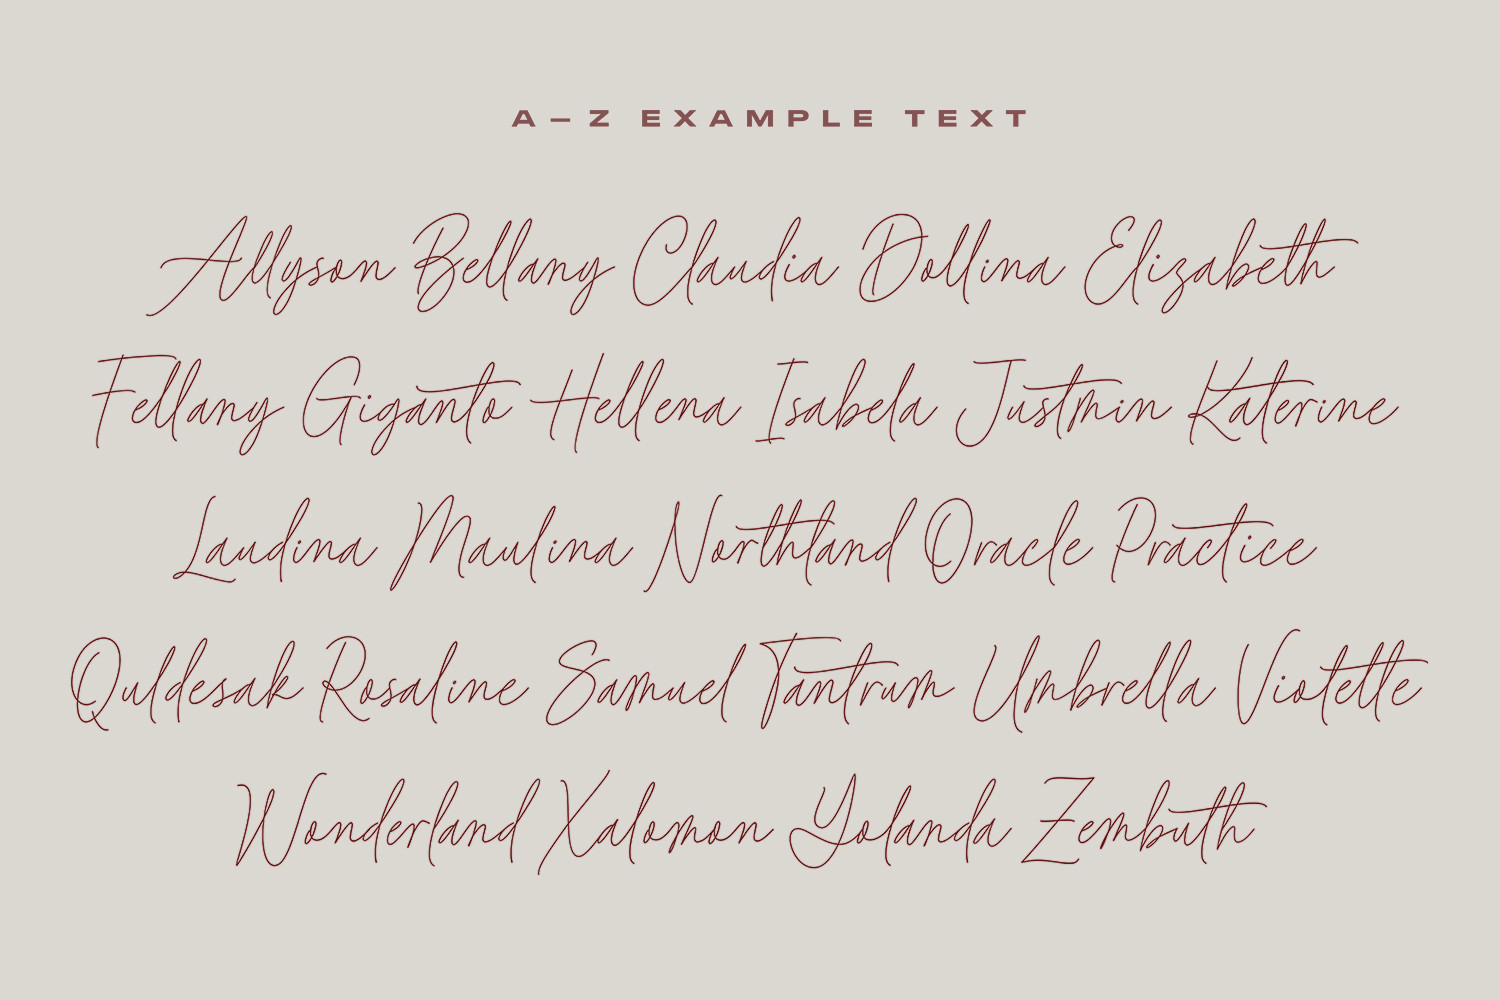 A – Z EXAMPLE TEXT
Allyson Bellany Claudia Dollina Elizabeth
Fellany Giganto Hellena Isabela Justmin Katerine
Laudina Maulina Northland Oracle Practice
Quldesak Rosaline Samuel Tantrum Umbrella Viotette
Wonderland Xalomon Yolanda Zembuth